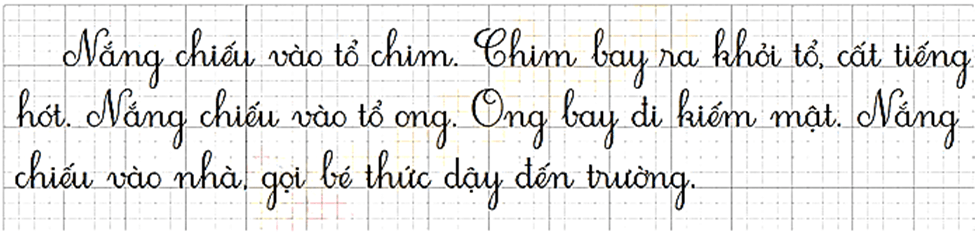 Nắng chiếu vào tổ chim. Chim bay ra khỏi tổ, cất tiếng
hót. Nắng chiếu vào tổ ong. Ong bay đi kiếm mật. Nắng
chiếu vào nhà, gọi bé thức dậy đến trường.